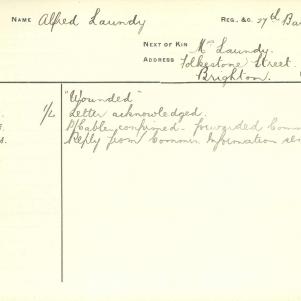 NAME Alfred Laundy REG., &C. 27th Ba
NEXT OF KIN Mrs Laundy.
ADDRESS Folkestone Street.
Brighton.
"Wounded"
1/L Letter acknowledged.
Cable confirmed. forwarded Comm
Reply from Common. Information re